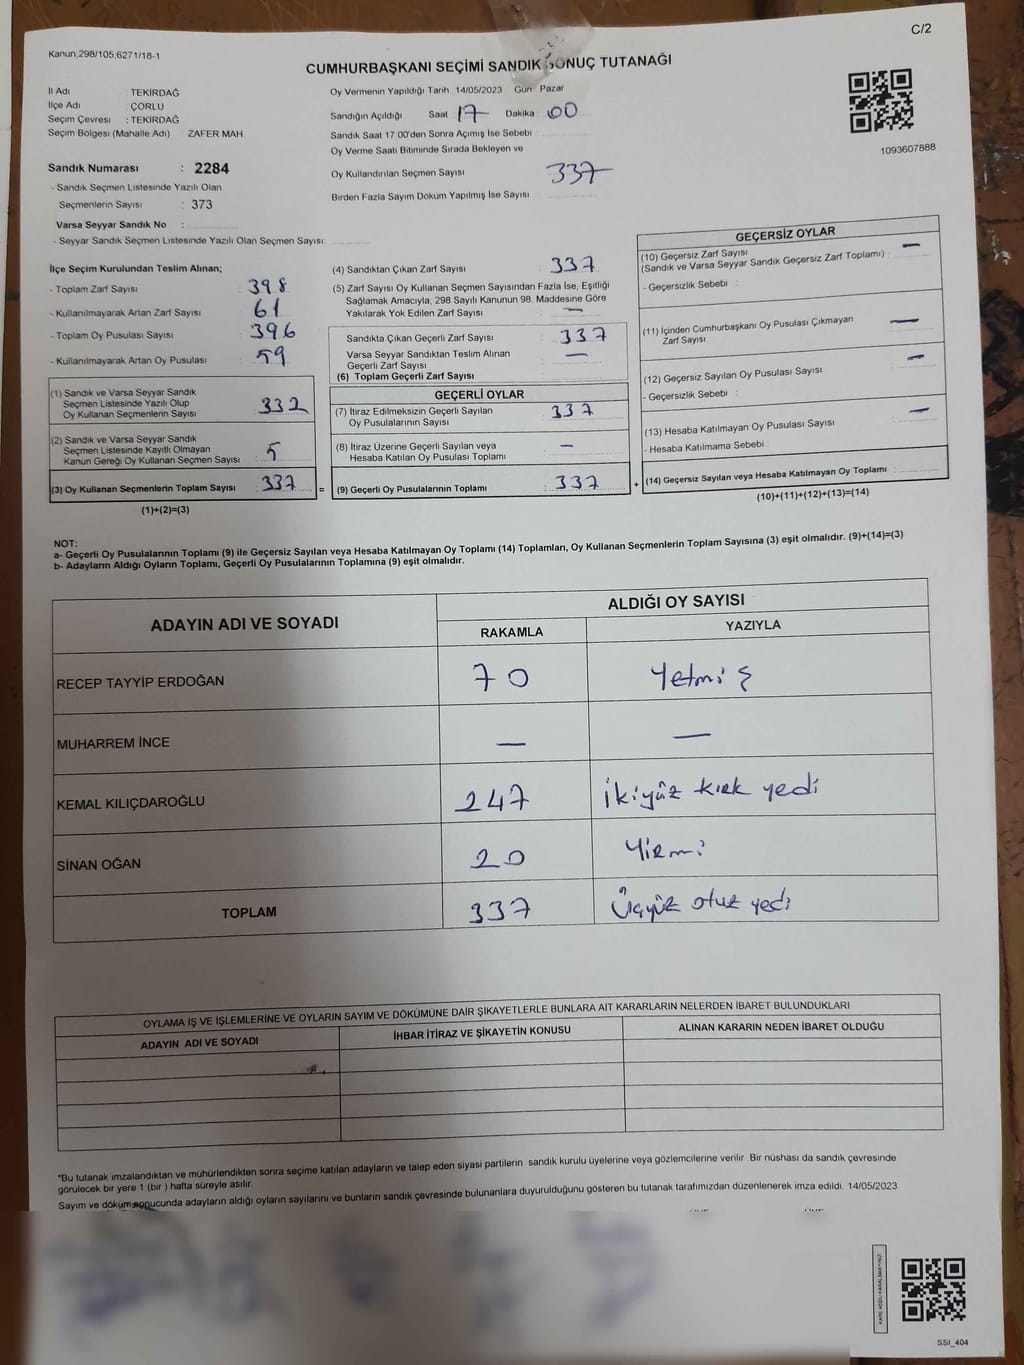 C/2
Kanun;298/105;6271/18-1
CUMHURBAŞKANI SEÇİMİ SANDIK SONUÇ TUTANAĞI
İl Adı TEKİRDAĞ
İlçe Adı ÇORLU
Seçim Çevresi : TEKİRDAĞ
Seçim Bölgesi (Mahalle Adı) ZAFER MAH.
Oy Vermenin Yapıldığı Tarih 14/05/2023 Gün Pazar
Sandığın Açıldığı Saat 17 Dakika 00
Sandık Saat 17:00'den Sonra Açımış İse Sebebi
Oy Verme Saati Bitiminde Sırada Bekleyen ve
Oy Kullandırılan Seçmen Sayısı 337
Birden Fazla Sayım Döküm Yapılmış İse Sayısı
1093607888
Sandık Numarası : 2284
- Sandık Seçmen Listesinde Yazılı Olan
Seçmenlerin Sayısı : 373
Varsa Seyyar Sandık No :
- Seyyar Sandık Seçmen Listesinde Yazılı Olan Seçmen Sayısı:
İlçe Seçim Kurulundan Teslim Alınan;
- Toplam Zarf Sayısı 398
- Kullanılmayarak Artan Zarf Sayısı 61
- Toplam Oy Pusulası Sayısı 396
- Kullanılmayarak Artan Oy Pusulası 59
(1) Sandık ve Varsa Seyyar Sandık
Seçmen Listesinde Yazılı Olup
Oy Kullanan Seçmenlerin Sayısı 332
(2) Sandık ve Varsa Seyyar Sandık
Seçmen Listesinde Kayıtlı Olmayan
Kanun Gereği Oy Kullanan Seçmen Sayısı 5
(3) Oy Kullanan Seçmenlerin Toplam Sayısı 337 =
(1)+(2)=(3)
(4) Sandıktan Çıkan Zarf Sayısı : 337
(5) Zarf Sayısı Oy Kullanan Seçmen Sayısından Fazla İse, Eşitliği
Sağlamak Amacıyla, 298 Sayılı Kanunun 98. Maddesine Göre
Yakılarak Yok Edilen Zarf Sayısı : —
Sandıkta Çıkan Geçerli Zarf Sayısı : 337
Varsa Seyyar Sandıktan Teslim Alınan
Geçerli Zarf Sayısı : —
(6) Toplam Geçerli Zarf Sayısı
GEÇERLİ OYLAR
(7) İtiraz Edilmeksizin Geçerli Sayılan
Oy Pusulalarının Sayısı : 337
(8) İtiraz Üzerine Geçerli Sayılan veya
Hesaba Katılan Oy Pusulası Toplamı : —
(9) Geçerli Oy Pusulalarının Toplamı : 337 +
GEÇERSİZ OYLAR
(10) Geçersiz Zarf Sayısı —
(Sandık ve Varsa Seyyar Sandık Geçersiz Zarf Toplamı)
- Geçersizlik Sebebi :
(11) İçinden Cumhurbaşkanı Oy Pusulası Çıkmayan
Zarf Sayısı —
(12) Geçersiz Sayılan Oy Pusulası Sayısı —
- Geçersizlik Sebebi :
(13) Hesaba Katılmayan Oy Pusulası Sayısı —
- Hesaba Katılmama Sebebi
(14) Geçersiz Sayılan veya Hesaba Katılmayan Oy Toplamı
(10)+(11)+(12)+(13)=(14)
NOT:
a- Geçerli Oy Pusulalarının Toplamı (9) ile Geçersiz Sayılan veya Hesaba Katılmayan Oy Toplamı (14) Toplamları, Oy Kullanan Seçmenlerin Toplam Sayısına (3) eşit olmalıdır. (9)+(14)=(3)
b- Adayların Aldığı Oyların Toplamı, Geçerli Oy Pusulalarının Toplamına (9) eşit olmalıdır.
ADAYIN ADI VE SOYADI
ALDIĞI OY SAYISI
RAKAMLA YAZIYLA
RECEP TAYYİP ERDOĞAN 70 Yetmiş
MUHARREM İNCE — —
KEMAL KILIÇDAROĞLU 247 İkiyüz kırk yedi
SİNAN OĞAN 20 Yirmi
TOPLAM 337 Üçyüz otuz yedi
OYLAMA İŞ VE İŞLEMLERİNE VE OYLARIN SAYIM VE DÖKÜMÜNE DAİR ŞİKAYETLERLE BUNLARA AİT KARARLARIN NELERDEN İBARET BULUNDUKLARI
ADAYIN ADI VE SOYADI İHBAR İTİRAZ VE ŞİKAYETİN KONUSU ALINAN KARARIN NEDEN İBARET OLDUĞU
*Bu tutanak imzalandıktan ve mühürlendikten sonra seçime katılan adayların ve talep eden siyasi partilerin sandık kurulu üyelerine veya gözlemcilerine verilir. Bir nüshası da sandık çevresinde
görülecek bir yere 1 (bir) hafta süreyle asılır.
Sayım ve döküm sonucunda adayların aldığı oyların sayılarını ve bunların sandık çevresinde bulunanlara duyurulduğunu gösteren bu tutanak tarafımızdan düzenlenerek imza edildi. 14/05/2023
SSI_404